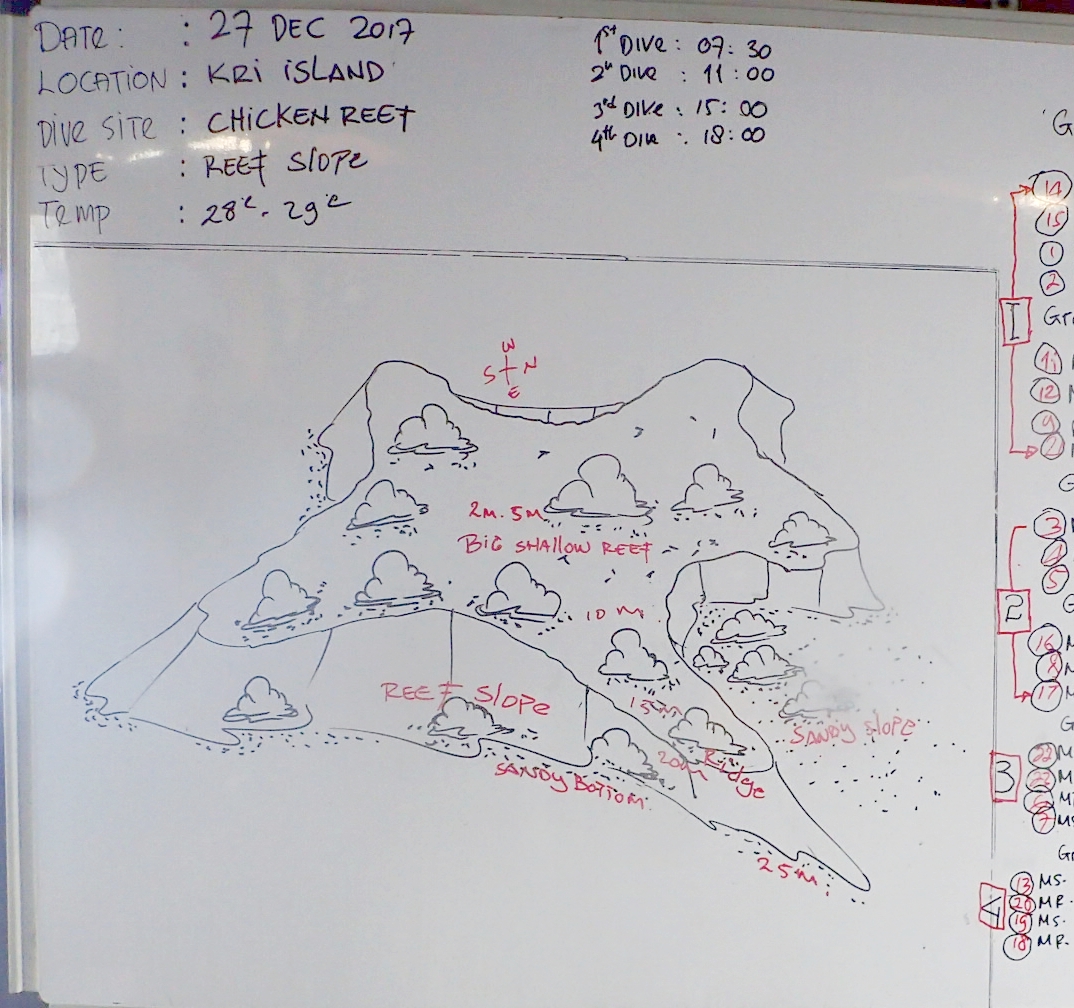 DATE : : 27 DEC 2017
LOCATION : KRI ISLAND
DIVE SITE : CHICKEN REEF
TYPE : REEF SLOPE
TEMP : 28°C - 29°C
1st DIVE : 07:30
2nd DIVE : 11:00
3rd DIVE : 15:00
4th DIVE : 18:00
W
S N
E
2M. 5M
BIG SHALLOW REEF
10 M
REEF SLOPE
15m
SANDY SLOPE
20m Ridge
SANDY BOTTOM
25M
G
14
15
1
2
1
Gr
11
12
9
G
3
4
5
2
G
16 M
8 M
17 M
G
22 M
3
M
6 M
7 MS
Gr
13 MS.
4
20 MR.
19 MS.
18 MR.